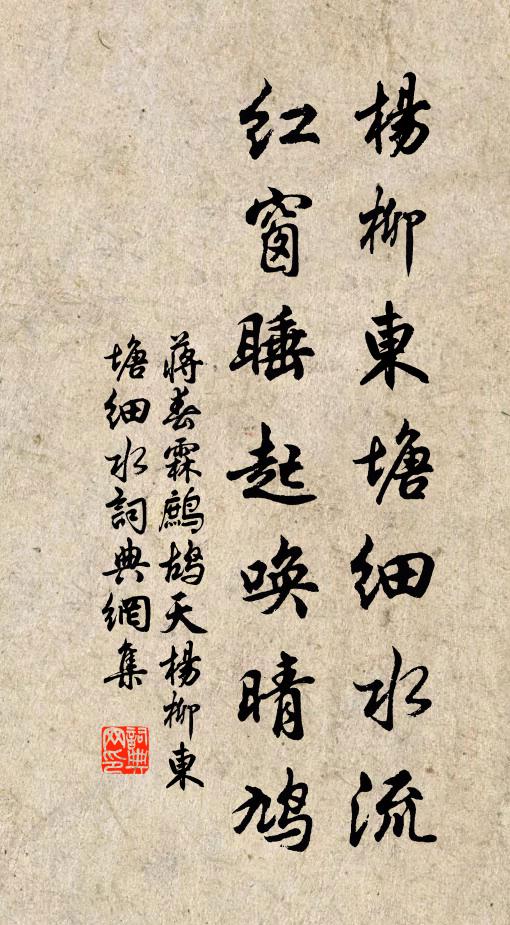 楊柳東塘細水流
紅窗睡起喚晴鳩
蔣春霖鷓鴣天楊柳東
塘細水詞典網集
詞典網印